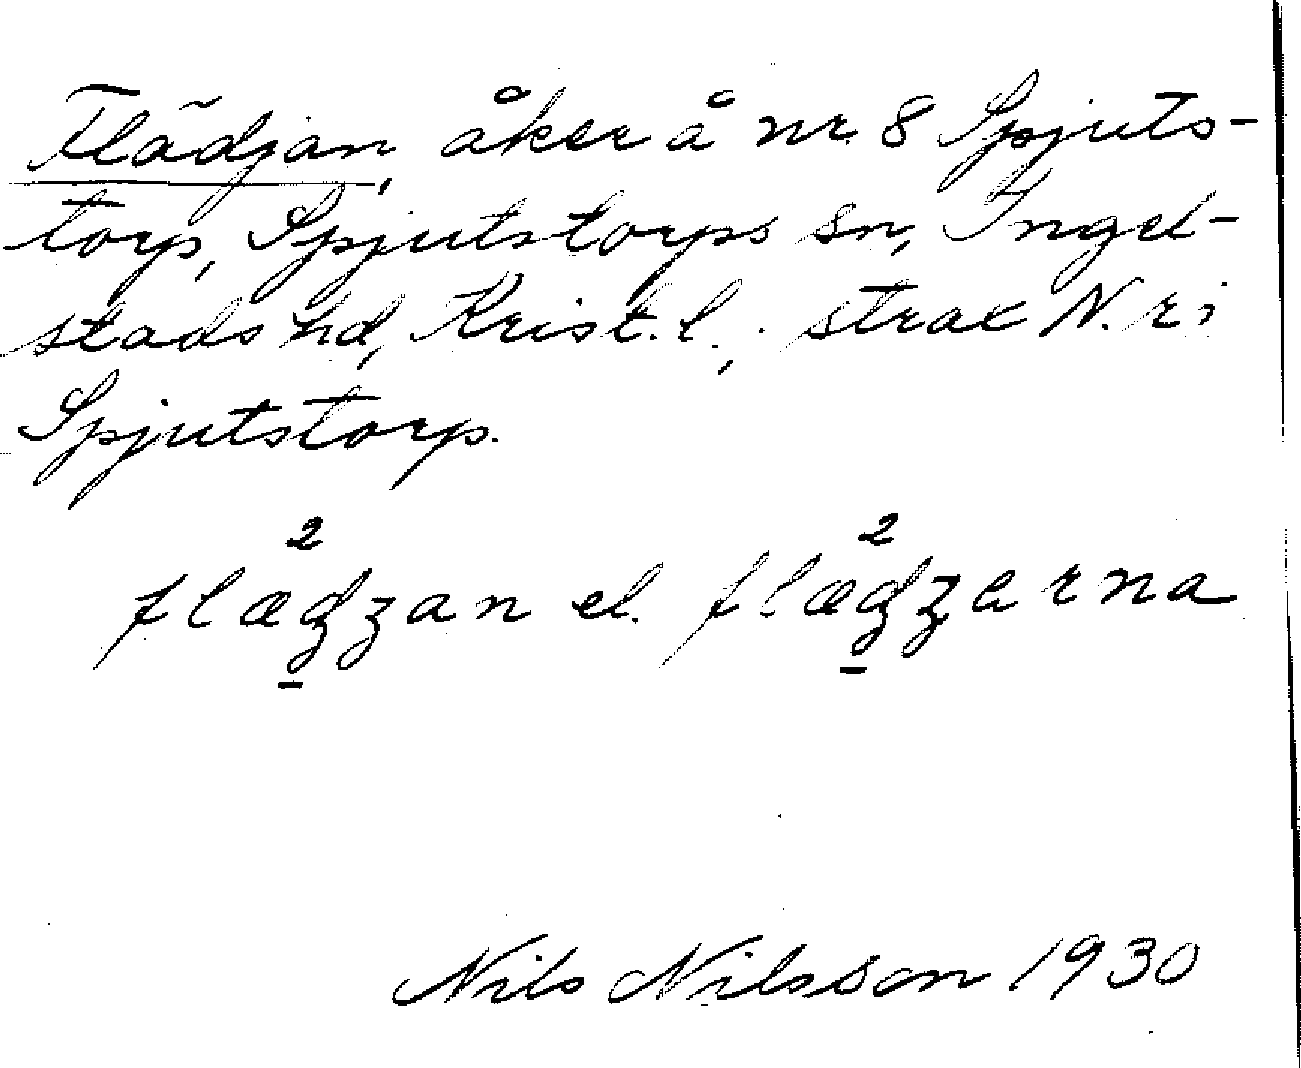 Flädjan, åker å nr 8 Spjuts-
torp, Spjutstorps sn, Ingel-
stads hd, Krist. l., strax N. r i
Spjutstorp.
2 2
flæʤʒan el. flæʤʒerna
Nils Nilsson 1930